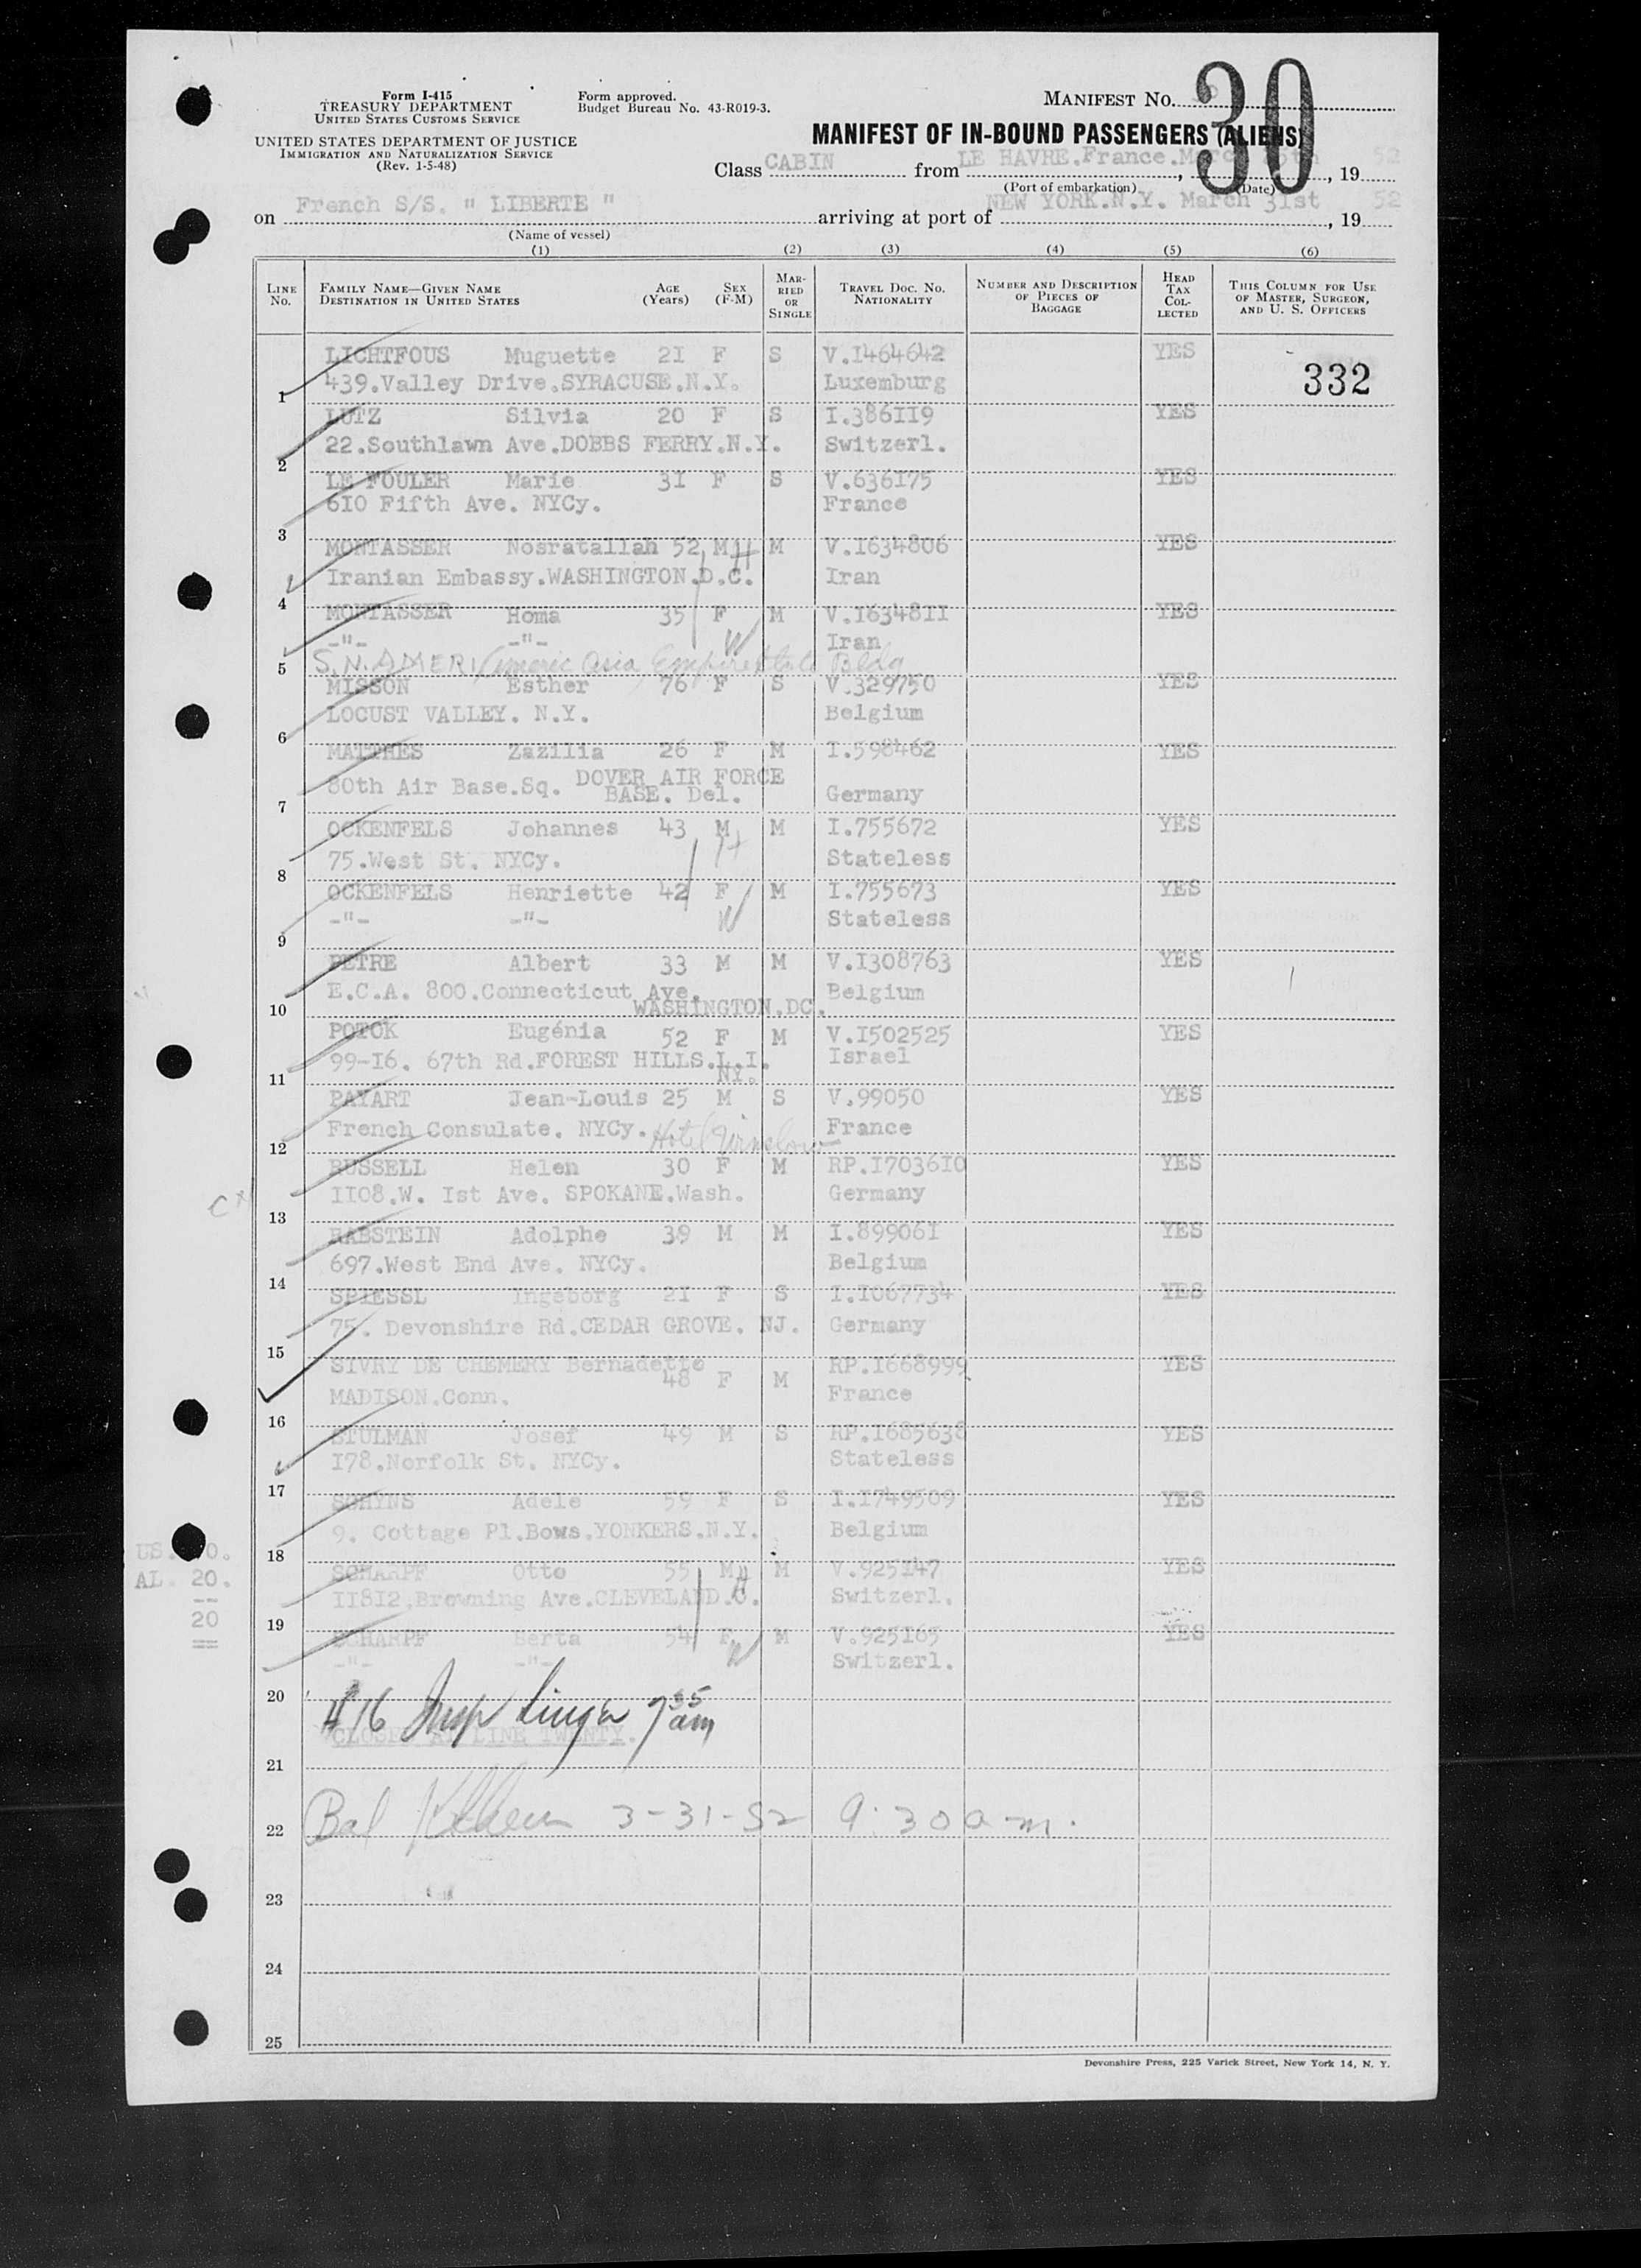 Form I-415
TREASURY DEPARTMENT
UNITED STATES CUSTOMS SERVICE
UNITED STATES DEPARTMENT OF JUSTICE
IMMIGRATION AND NATURALIZATION SERVICE
(Rev. 1-5-48)
Form approved.
Budget Bureau No. 43-R019-3.
MANIFEST No. 30
MANIFEST OF IN-BOUND PASSENGERS (ALIENS)
Class CABIN from LE HAVRE.France.March 25th, 19 52
(Port of embarkation) (Date)
on French S/S. " LIBERTE " arriving at port of NEW YORK.N.Y. March 31st, 19 52
(Name of vessel)
(1) (2) (3) (4) (5) (6)
LINE No. FAMILY NAME—GIVEN NAME DESTINATION IN UNITED STATES AGE (Years) SEX (F-M) MARRIED OR SINGLE TRAVEL DOC. NO. NATIONALITY NUMBER AND DESCRIPTION OF PIECES OF BAGGAGE HEAD TAX COLLECTED THIS COLUMN FOR USE OF MASTER, SURGEON, AND U. S. OFFICERS
LICHTFOUS Muguette 2I F S V.I464642 YES
439.Valley Drive.SYRACUSE.N.Y. Luxemburg 332
1
LUTZ Silvia 20 F S I.386II9 YES
22.Southlawn Ave.DOBBS FERRY.N.Y. Switzerl.
2
LE FOULER Marie 3I F S V.636I75 YES
6I0 Fifth Ave. NYCy. France
3
MONTASSER Nosratallah 52 M H M V.I634806 YES
Iranian Embassy.WASHINGTON.D.C. Iran
4
MONTASSER Homa 35 F M V.I6348II YES
-"- -"- W Iran
5 S.N. AMERI Americ Asia Empire State Bldg
MISSON Esther 76 F S V.329750 YES
LOCUST VALLEY. N.Y. Belgium
6
MATTHES Zazilia 26 F M I.598462 YES
80th Air Base.Sq. DOVER AIR FORCE
BASE. Del. Germany
7
OCKENFELS Johannes 43 M H M I.755672 YES
75.West St. NYCy. Stateless
8
OCKENFELS Henriette 42 F M I.755673 YES
-"- -"- W Stateless
9
PETRE Albert 33 M M V.I308763 YES
E.C.A. 800.Connecticut Ave. Belgium
WASHINGTON.DC.
10
POTOK Eugénia 52 F M V.I502525 YES
99-I6. 67th Rd.FOREST HILLS.L.I. Israel
NY.
11
PAYART Jean-Louis 25 M S V.99050 YES
French Consulate. NYCy. Hotel Winslow France
12
RUSSELL Helen 30 F M RP.I7036I0 YES
II08.W. Ist Ave. SPOKANE.Wash. Germany
13
HABSTEIN Adolphe 39 M M I.89906I YES
697.West End Ave. NYCy. Belgium
14
SPIESSL Ingeborg 2I F S I.I067734 YES
75. Devonshire Rd.CEDAR GROVE. NJ. Germany
15
SIVRY DE CHEMERY Bernadette RP.I668999 YES
48 F M
MADISON.Conn. France
16
STULMAN Josef 49 M S RP.I685638 YES
I78.Norfolk St. NYCy. Stateless
17
SCHYNS Adele 59 F S I.I749509 YES
9. Cottage Pl.Bows.YONKERS.N.Y. Belgium
18
SCHARPF Otto 55 M H M V.925I47 YES
II8I2.Browning Ave.CLEVELAND.O. Switzerl.
19
SCHARPF Berta 54 F W M V.925I65 YES
-"- -"- Switzerl.
20
US. 0.
AL. 20.
--
20
==
#16 Insp 7 35 am
CLOSED AT LINE TWENTY.
21
Bal 3-31-52 9:30 a.m.
22
23
24
25
Devonshire Press, 225 Varick Street, New York 14, N. Y.